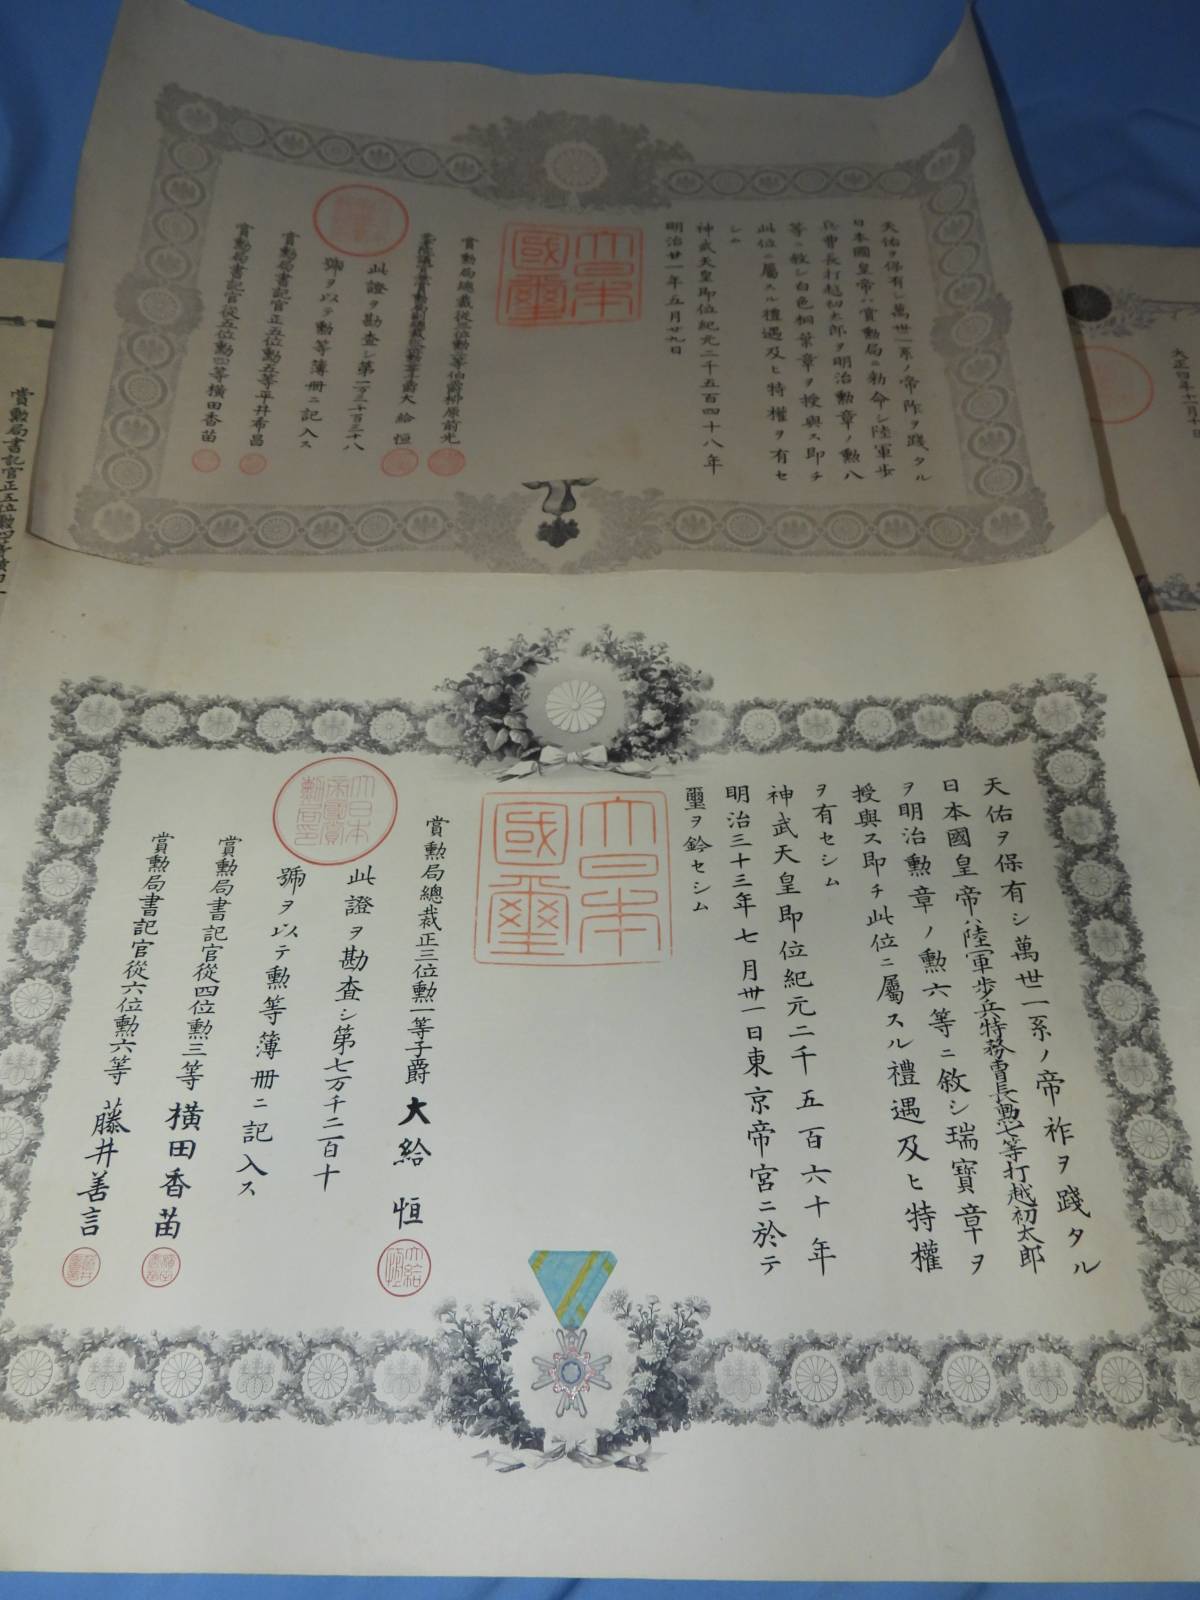 天佑ヲ保有シ萬世一系ノ帝阼ヲ踐タル
日本國皇帝ハ賞勲局ニ勅命シ陸軍歩
兵曹長打越初太郎ヲ明治勲章ノ勲八
等ニ敘シ白色桐葉章ヲ授與ス即チ
此位ニ屬スル禮遇及ヒ特權ヲ有セ
シム
神武天皇即位紀元二千五百四十八年
明治廿一年五月廿九日
大日本
國璽
賞勲局總裁從三位勲一等伯爵柳原前光
大給恒
此證ヲ勘査シ第一万三千百三十八
號ヲ以テ勲等簿冊ニ記入ス
賞勲局書記官正五位勲五等平井希昌
賞勲局書記官從五位勲四等橫田香苗
大正四年十一月十日
賞勲局書記官正五位勲四等橫田
天佑ヲ保有シ萬世一系ノ帝祚ヲ踐タル
日本國皇帝ハ陸軍歩兵特務曹長勲七等打越初太郎
ヲ明治勲章ノ勲六等ニ敘シ瑞寶章ヲ
授與ス即チ此位ニ屬スル禮遇及ヒ特權
ヲ有セシム
神武天皇即位紀元二千五百六十年
明治三十三年七月卅一日東京帝宮ニ於テ
璽ヲ鈐セシム
大日本
國璽
賞勲局總裁正三位勲一等子爵大給恒
大日本
帝國賞
勲局印
此證ヲ勘査シ第七万千二百十
號ヲ以テ勲等簿冊ニ記入ス
賞勲局書記官從四位勲三等橫田香苗
賞勲局書記官從六位勲六等藤井善言